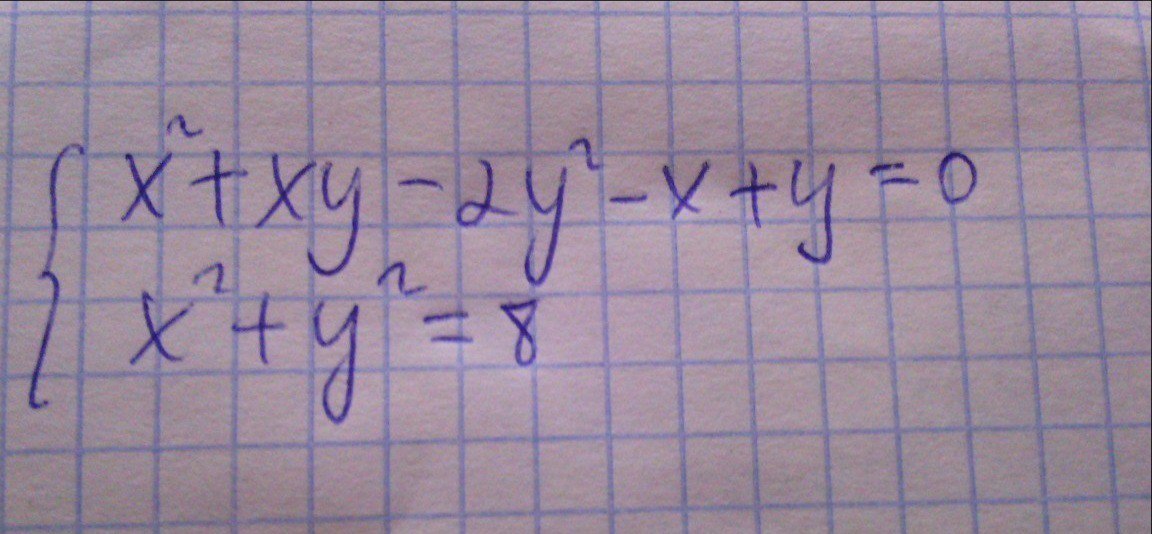 x² + xy - 2y² - x + y = 0
x² + y² = 8